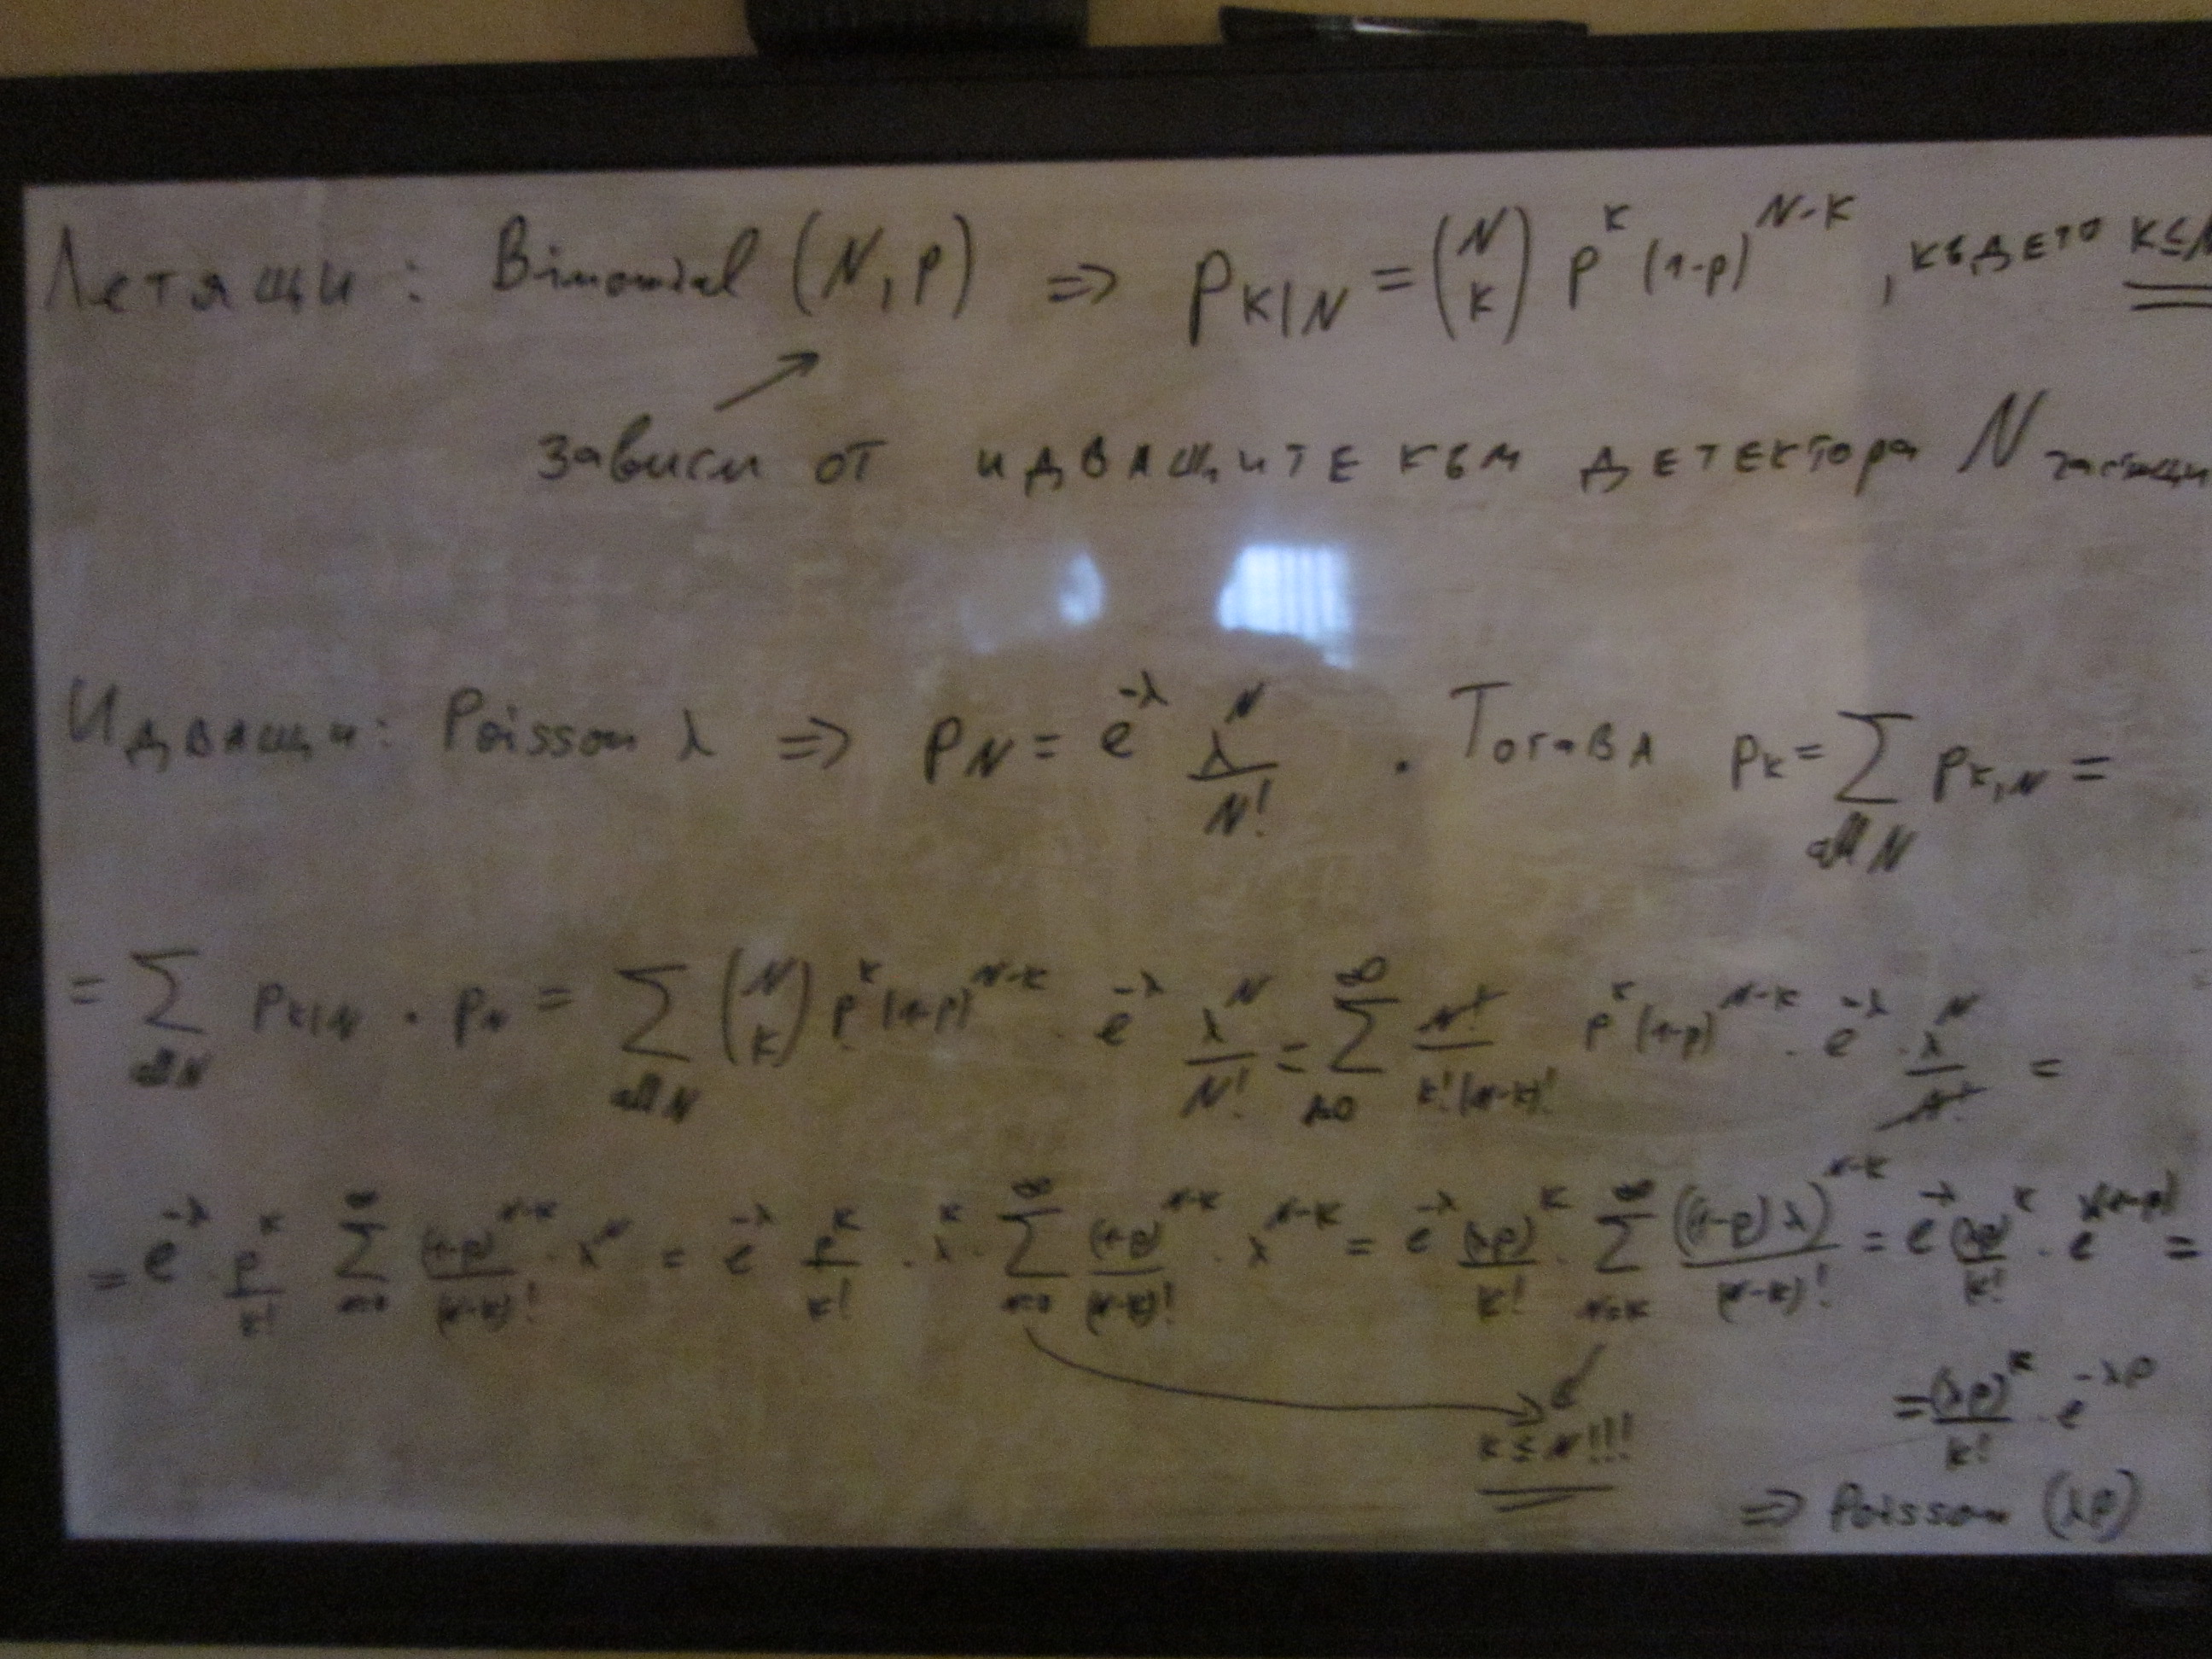 Летящи: Binomial (N, p) ⇒ P_{K|N} = \binom{N}{K} p^K (1-p)^{N-K}, където K≤N
зависи от идващите към детектора N частици
Идващи: Poisson λ ⇒ P_N = e^{-λ} \frac{λ^N}{N!} . Тогава P_K = \sum_{all N} P_{K,N} =
= \sum_{all N} P_{K|N} . P_N = \sum_{all N} \binom{N}{K} p^K (1-p)^{N-K} . e^{-λ} \frac{λ^N}{N!} = \sum_{N=0}^{∞} \frac{N!}{K!(N-K)!} p^K (1-p)^{N-K} . e^{-λ} . \frac{λ^N}{N!} =
= e^{-λ} . \frac{p^K}{K!} \sum_{N=0}^{∞} \frac{(1-p)^{N-K}}{(N-K)!} . λ^N = e^{-λ} \frac{p^K}{K!} . λ^K . \sum_{N=0}^{∞} \frac{(1-p)^{N-K}}{(N-K)!} . λ^{N-K} = e^{-λ} \frac{(λp)^K}{K!} . \sum_{N=K}^{∞} \frac{((1-p)λ)^{N-K}}{(N-K)!} = e^{-λ} \frac{(λp)^K}{K!} . e^{λ(1-p)} =
K ≤ N!!!
= \frac{(λp)^K}{K!} . e^{-λp}
⇒ Poisson (λp)